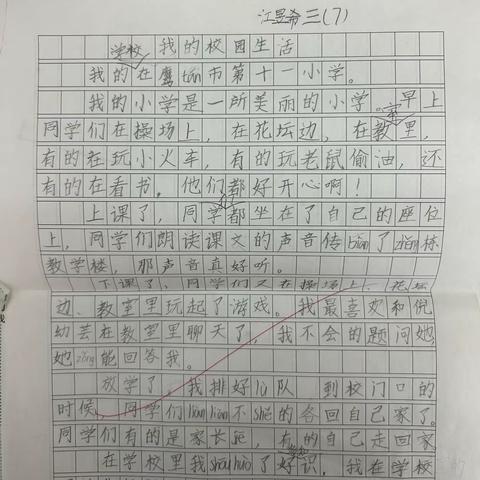 江昱希三(7)
我的校园生活
学校
我的在鹰tán市第十一小学。
我的小学是一所美丽的小学。早上
室
同学们在操场上,在花坛边,在教里,
有的在玩小火车,有的玩老鼠偷油,还
有的在看书。他们都好开心啊!
上课了,同学都坐在了自己的座位
上,同学们朗读课文的声音传biàn了zhěng栋
教学楼,那声音真好听。
下课了,同学们又在操场上、花坛
边、教室里玩起了游戏。我最喜欢和倪
幼芸在教室里聊天了,我不会的题问她
她zǒng能回答我。
放学了,我排好lù队 到校门口的
时候 同学们liàn liàn不shě的各回自己家了。
同学们有的是家长jiē,有的自己走回家
在学校里我shōu huò了好识,我在学校